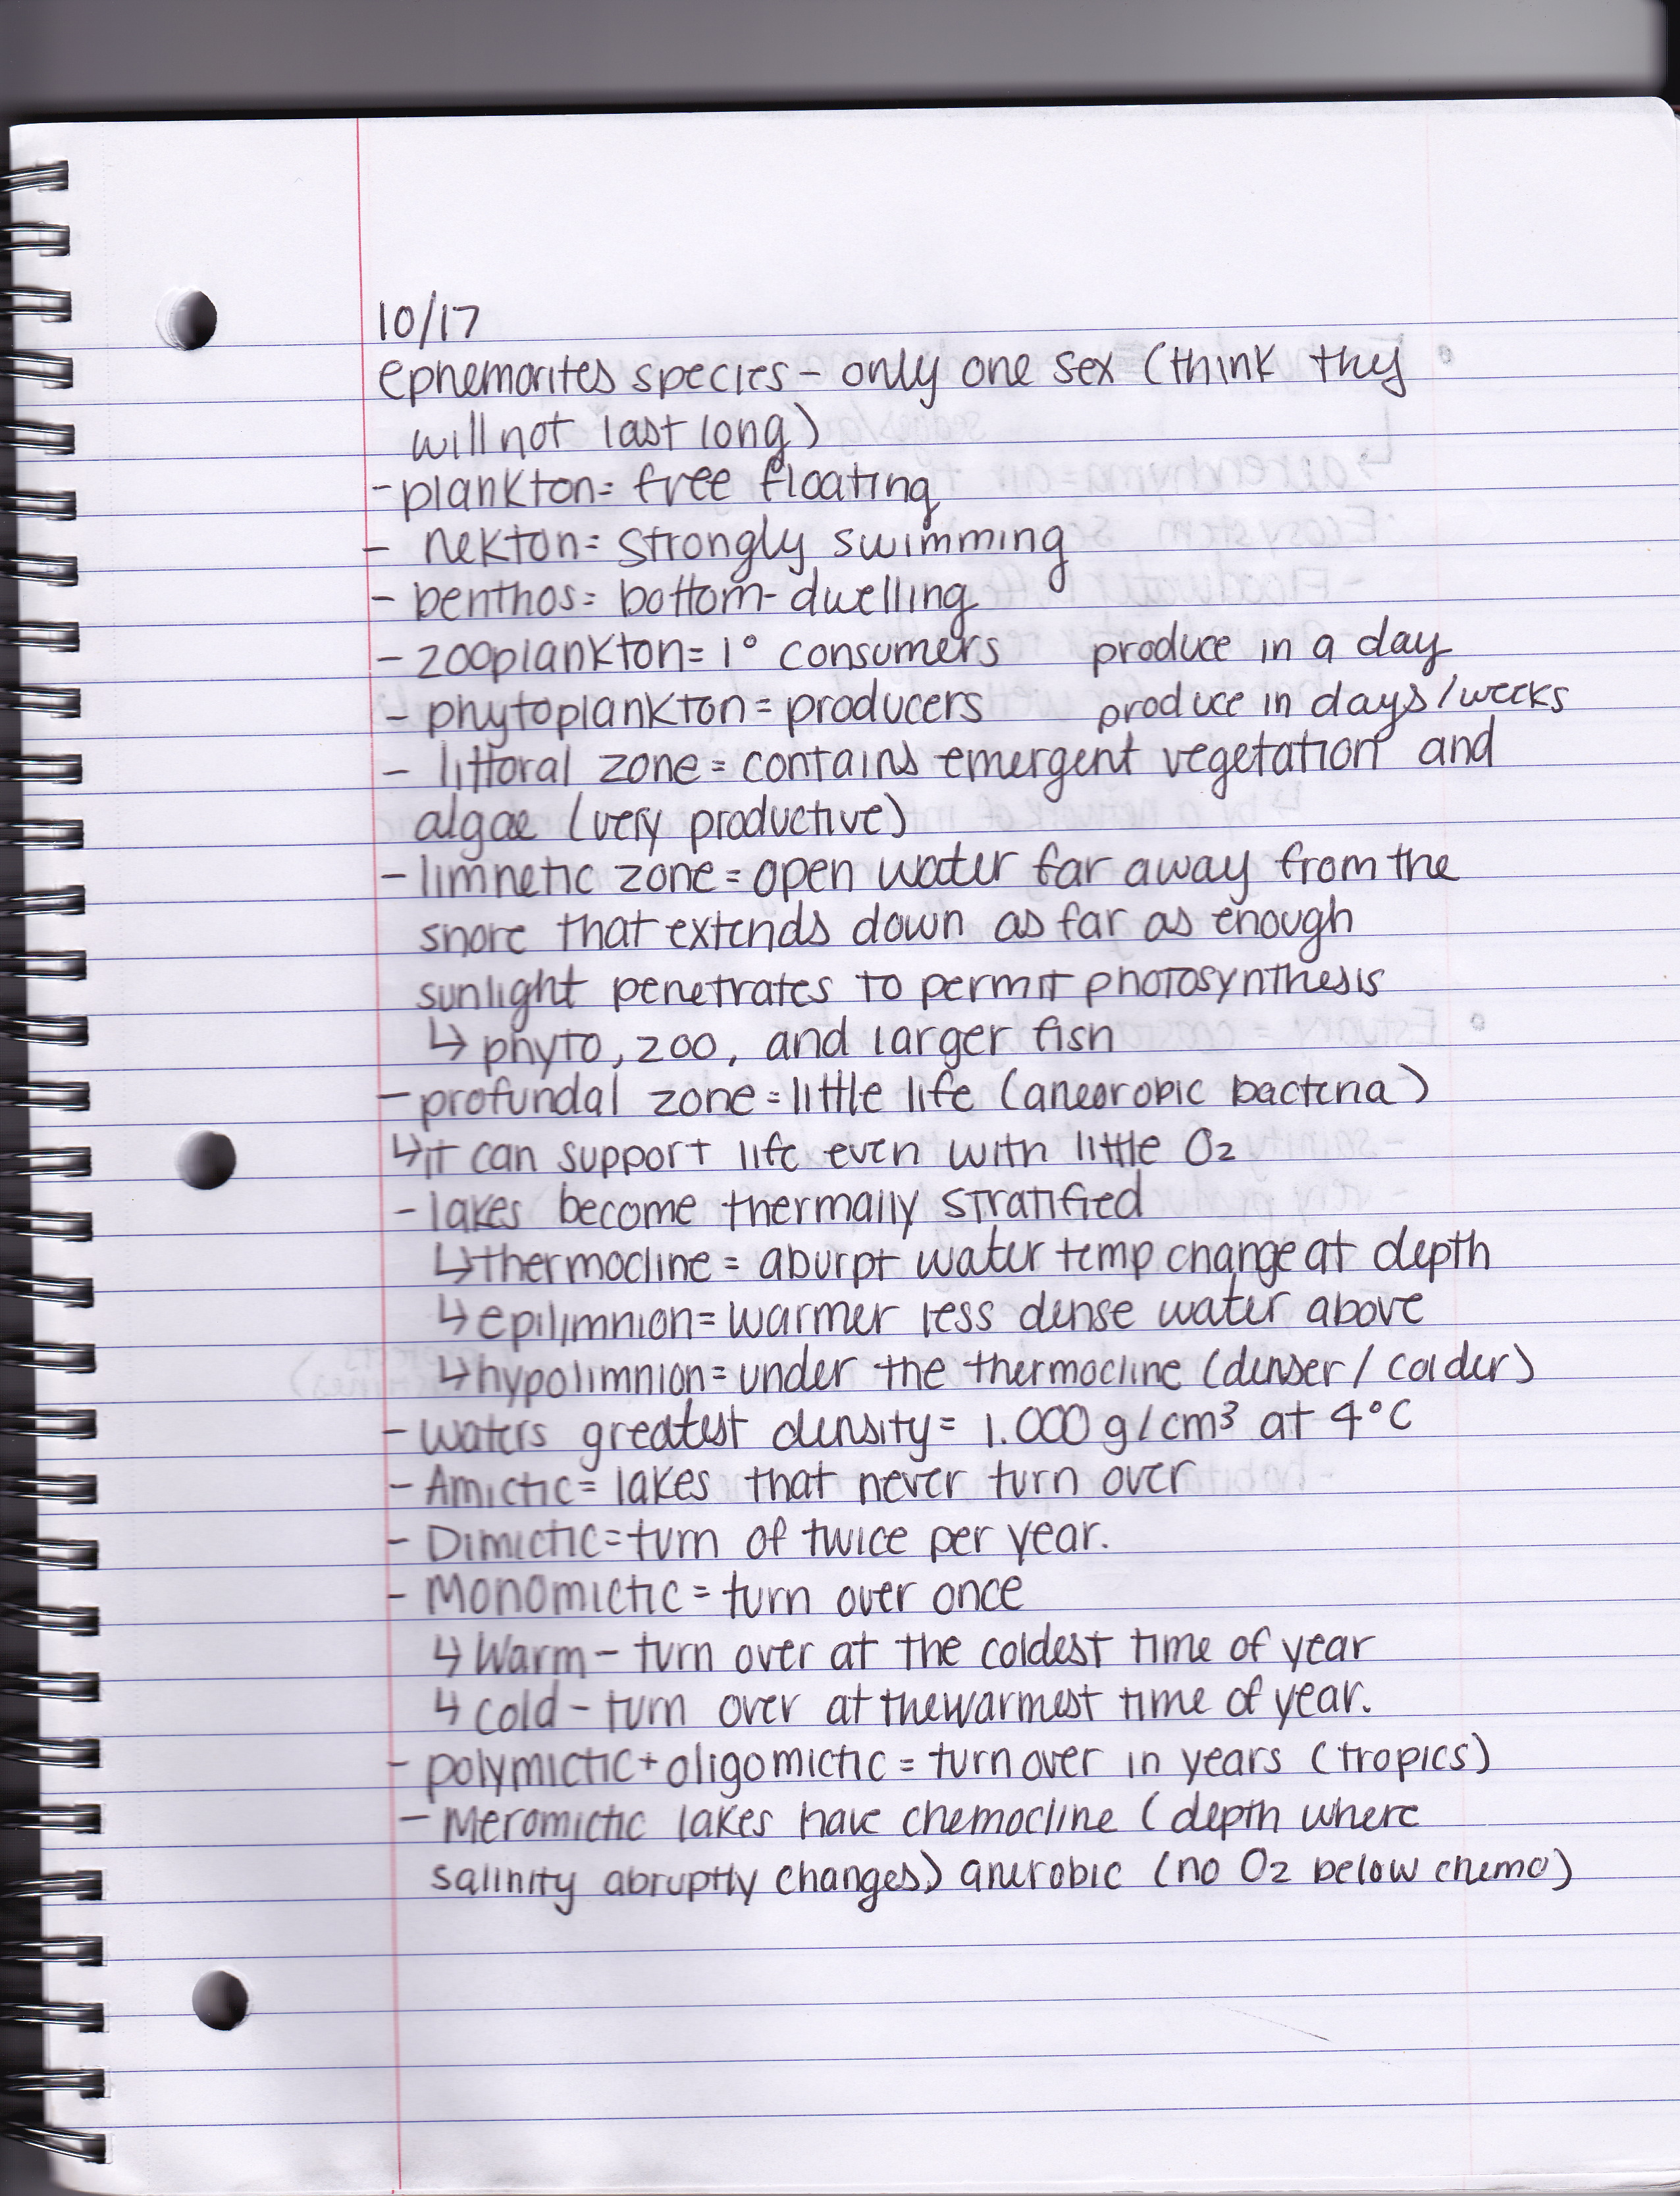 10/17
ephemorites species - only one sex (think they
will not last long)
- plankton = free floating
- nekton = strongly swimming
- benthos = bottom-dwelling
- zooplankton = 1° consumers produce in a day
- phytoplankton = producers produce in days/weeks
- littoral zone = contains emergent vegetation and
algae (very productive)
- limnetic zone = open water far away from the
shore that extends down as far as enough
sunlight penetrates to permit photosynthesis
↳ phyto, zoo, and larger fish
- profundal zone = little life (anearobic bacteria)
↳ it can support life even with little O2
- lakes become thermally stratified
↳ thermocline = aburpt water temp change at depth
↳ epilimnion = warmer less dense water above
↳ hypolimnion = under the thermocline (denser / colder)
- waters greatest density = 1.000 g/cm³ at 4°C
- Amictic = lakes that never turn over
- Dimictic = turn of twice per year.
- Monomictic = turn over once
↳ Warm - turn over at the coldest time of year
↳ cold - turn over at the warmest time of year.
- polymictic + oligomictic = turn over in years (tropics)
- Meromictic lakes have chemocline (depth where
salinity abruptly changes) anerobic (no O2 below chemo)